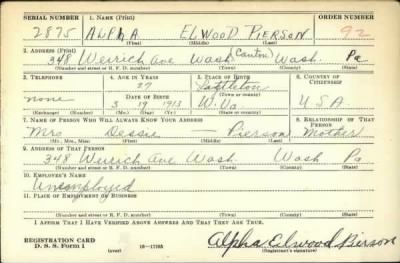 SERIAL NUMBER 1. NAME (Print) ORDER NUMBER
2875 ALPHA ELWOOD PIERSON 92
(First) (Middle) (Last)
2. ADDRESS (Print) (Canton)
348 Weirich Ave Wash Wash. Pa
(Number and street or R. F. D. number) (Town) (County) (State)
3. TELEPHONE 4. AGE IN YEARS 5. PLACE OF BIRTH 6. COUNTRY OF CITIZENSHIP
27 Littleton
none DATE OF BIRTH (Town or county)
3 19 1913 W. Va. U S A
(Exchange) (Number) (Mo.) (Day) (Yr.) (State or country)
7. NAME OF PERSON WHO WILL ALWAYS KNOW YOUR ADDRESS 8. RELATIONSHIP OF THAT PERSON
Mrs Dessie — Pierson Mother
(Mr., Mrs., Miss) (First) (Middle) (Last)
9. ADDRESS OF THAT PERSON
348 Weirich Ave Wash Wash Pa
(Number and street or R. F. D. number) (Town) (County) (State)
10. EMPLOYER'S NAME
Unemployed
11. PLACE OF EMPLOYMENT OR BUSINESS
(Number and street or R. F. D. number) (Town) (County) (State)
I AFFIRM THAT I HAVE VERIFIED ABOVE ANSWERS AND THAT THEY ARE TRUE.
REGISTRATION CARD
D. S. S. Form 1 (over) 16—17105 Alpha Elwood Pierson
(Registrant's signature)